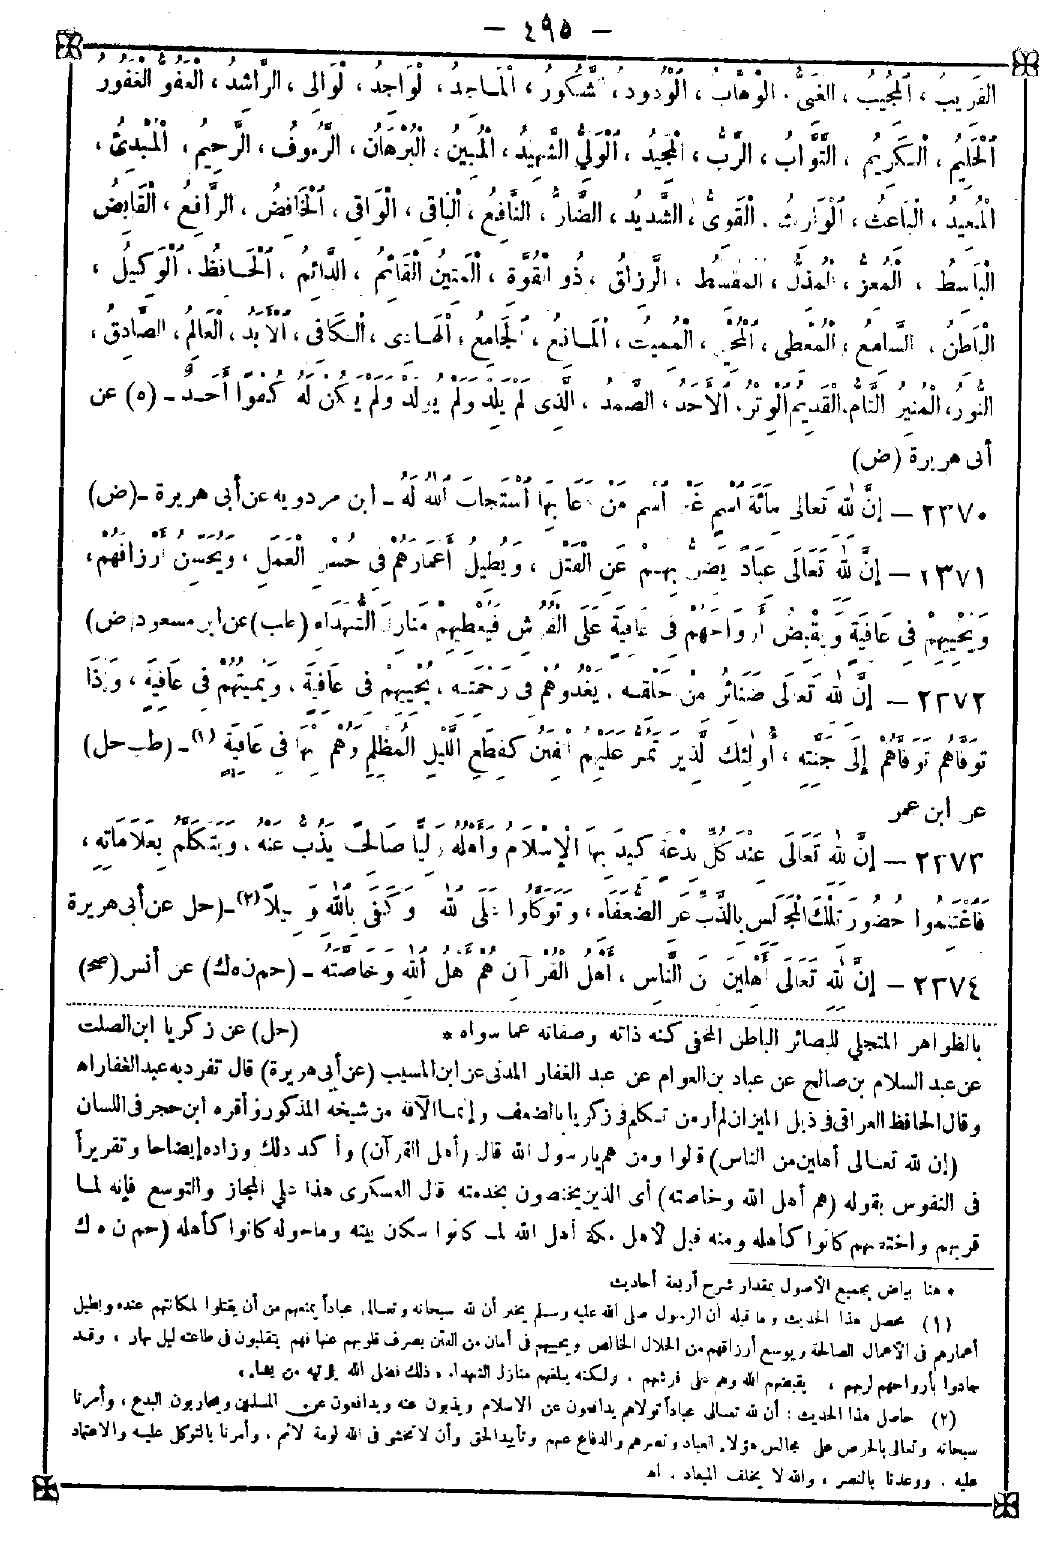 — ٤٩٥ —
القَرِيبُ ، اَلْمُجِيبُ ، الغَنِىُّ ، الوَهَّابُ ، اَلْوَدُودُ ، الشَّكُورُ ، اَلْمَاجِدُ ، لْوَاجِدُ ، لْوَالِى ، الرَّاشِدُ ، الْعَفُوُّ الْغَفُورُ
اَلْحَلِيمُ ، الْكَرِيمُ ، التَّوَّابُ ، الرَّبُّ ، الْمَجِيدُ ، اَلْوَلِيُّ الشَّهِيدُ ، الْمُبِينُ ، الْبُرْهَانُ ، الرَّءُوفُ ، الرَّحِيمُ ، اَلْمُبْدِئُ ،
الْمُعِيدُ ، الْبَاعِثُ ، اَلْوَارِثُ . الْقَوِىُّ ، الشَّدِيدُ ، الضَّارُّ ، النَّافِعُ ، الْبَاقِى ، الْوَاقِى ، اَلْخَافِضُ ، الرَّافِعُ ، الْقَابِضُ
الْبَاسِطُ ، الْمُعِزُّ ، الْمُذِلُّ ، الْمُقْسِطُ ، الرَّزَّاقُ ، ذُو الْقُوَّةِ ، الْمَتِينُ الْقَائِمُ ، الدَّائِمُ ، اَلْحَافِظُ ، اَلْوَكِيلُ ،
الْبَاطِنُ ، السَّامِعُ ، الْمُعْطِى ، اَلْمُحْيِى ، الْمُمِيتُ ، اَلْمَانِعُ ، الْجَامِعُ ، اَلْهَادِى ، اَلْكَافِى ، اَلْأَبَدُ ، الْعَالِمُ ، الصَّادِقُ ،
النُّورُ ، الْمُنِيرُ التَّامُّ ، الْقَدِيمُ اَلْوِتْرُ ، الْأَحَدُ ، الصَّمَدُ ، الَّذِى لَمْ يَلِدْ وَلَمْ يُولَدْ وَلَمْ يَكُنْ لَهُ كُفُوًا أَحَدٌ ـ (ه) عن
أبى هريرة (ض)
٢٣٧٠ — إِنَّ لِلّٰهِ تَعَالَى مِائَةَ اَسْمٍ غَيْرَ اَسْمٍ مَنْ دَعَا بِهَا اَسْتَجَابَ اَللهُ لَهُ ـ ابن مردويه عن أبى هريرة ـ (ض)
٢٣٧١ — إِنَّ لِلّٰهِ تَعَالَى عِبَادًا يَضِنُّ بِهِمْ عَنِ الْقَتْلِ ، وَيُطِيلُ أَعْمَارَهُمْ فِى حُسْنِ الْعَمَلِ ، وَيُحَسِّنُ أَرْزَاقَهُمْ ،
وَيُحْيِيهِمْ فِى عَافِيَةٍ وَيَقْبِضُ أَرْوَاحَهُمْ فِى عَافِيَةٍ عَلَى الْفُرُشِ فَيُعْطِيهِمْ مَنَازِلَ الشُّهَدَاءِ (طب) عن ابن مسعود (ض)
٢٣٧٢ — إِنَّ لِلّٰهِ تَعَالَى ضَنَائِنَ مِنْ خَلْقِهِ . يَغْذُوهُمْ فِى رَحْمَتِهِ . يُحْيِيهِمْ فِى عَافِيَةٍ . وَيُمِيتُهُمْ فِى عَافِيَةٍ ، وَإِذَا
تَوَفَّاهُمْ تَوَفَّاهُمْ إِلَى جَنَّتِهِ ، أُولٰئِكَ الَّذِينَ تَمُرُّ عَلَيْهِمُ الْفِتَنُ كَقِطَعِ اللَّيْلِ الْمُظْلِمِ وَهُمْ مِنْهَا فِى عَافِيَةٍ (١) ـ (طب حل)
عن ابن عمر
٢٣٧٣ — إِنَّ لِلّٰهِ تَعَالَى عِنْدَ كُلِّ بِدْعَةٍ كِيدَ بِهَا الْإِسْلَامُ وَأَهْلُهُ وَلِيًّا صَالِحًا يَذُبُّ عَنْهُ ، وَيَتَكَلَّمُ بِعَلَامَاتِهِ ،
فَاغْتَنِمُوا حُضُورَ تِلْكَ الْمَجَالِسِ بِالذَّبِّ عَنِ الضُّعَفَاءِ ، وَتَوَكَّلُوا عَلَى اللهِ وَكَفَى بِاللهِ وَكِيلاً (٢) ـ (حل عن أبى هريرة
٢٣٧٤ — إِنَّ لِلّٰهِ تَعَالَى أَهْلِينَ مِنَ النَّاسِ ، أَهْلُ الْقُرْآنِ هُمْ أَهْلُ اللهِ وَخَاصَّتُهُ ـ (حم ن ه ك) عن أنس (صح)
بالظواهر المتجلي للبصائر الباطن المخفى كنه ذاته وصفاته عما سواه * (حل) عن زكريا ابن الصلت
عن عبد السلام بن صالح عن عباد بن العوام عن عبد الغفار المدنى عن ابن المسيب (عن أبى هريرة) قال تفرد به عبد الغفار اه
وقال الحافظ العراقى فى ذيل الميزان لم أر من تكلم فى زكريا بالضعف وإنما الآفة من شيخه المذكور وأقره ابن حجر فى اللسان
(إن لله تعالى أهلين من الناس) قالوا ومن هم يارسول الله قال (أهل القرآن) وأكد ذلك وزاده إيضاحا وتقريراً
فى النفوس بقوله (هم أهل الله وخاصته) أى الذين يختصون بخدمته قال العسكرى هذا على المجاز والتوسع فإنه لما
قربهم واختصهم كانوا كأهله ومنه قيل لأهل مكة أهل الله لما كانوا سكان بيته وماحوله كانوا كأهله (حم ن ه ك
* هنا بياض بجميع الأصول بمقدار شرح أربعة أحاديث
(١) محصل هذا الحديث وما قبله أن الرسول صلى الله عليه وسلم يخبر أن لله سبحانه وتعالى عباداً يمنعهم من أن يقتلوا لمكانتهم عنده ويطيل
أعمارهم فى الأعمال الصالحة ويوسع أرزاقهم من الحلال الخالص ويحييهم فى أمان من الفتن بصرف قلوبهم عنها فهم يتقلبون فى طاعته ليل نهار ، وقد
جادوا بأرواحهم لربهم ، يقبضهم الله وهم على فرشهم . ولكنه يبلغهم منازل الشهداء ، ذلك فضل الله يؤتيه من يشاء ،
(٢) حاصل هذا الحديث : أن لله تعالى عباداً تولاهم يدافعون عن الاسلام ويذبون عنه ويدافعون عن المسلمين ويحاربون البدع ، وأمرنا
سبحانه وتعالى بالحرص على مجالس هؤلاء العباد ونصرهم والدفاع عنهم وتأييد الحق وأن لا نخشى فى الله لومة لائم . وأمرنا بالتوكل عليه والاعتماد
عليه . ووعدنا بالنصر ، والله لا يخلف الميعاد . اه